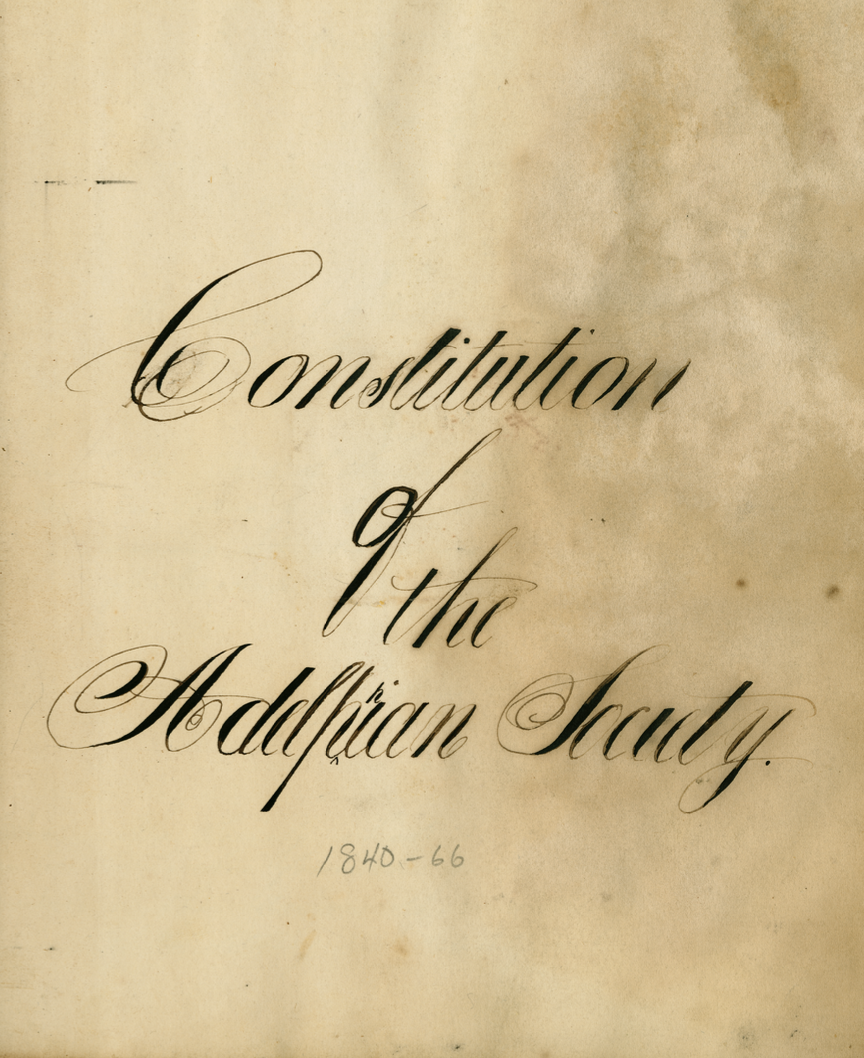 Constitution
of
the
Adelphian Society.
1840-66